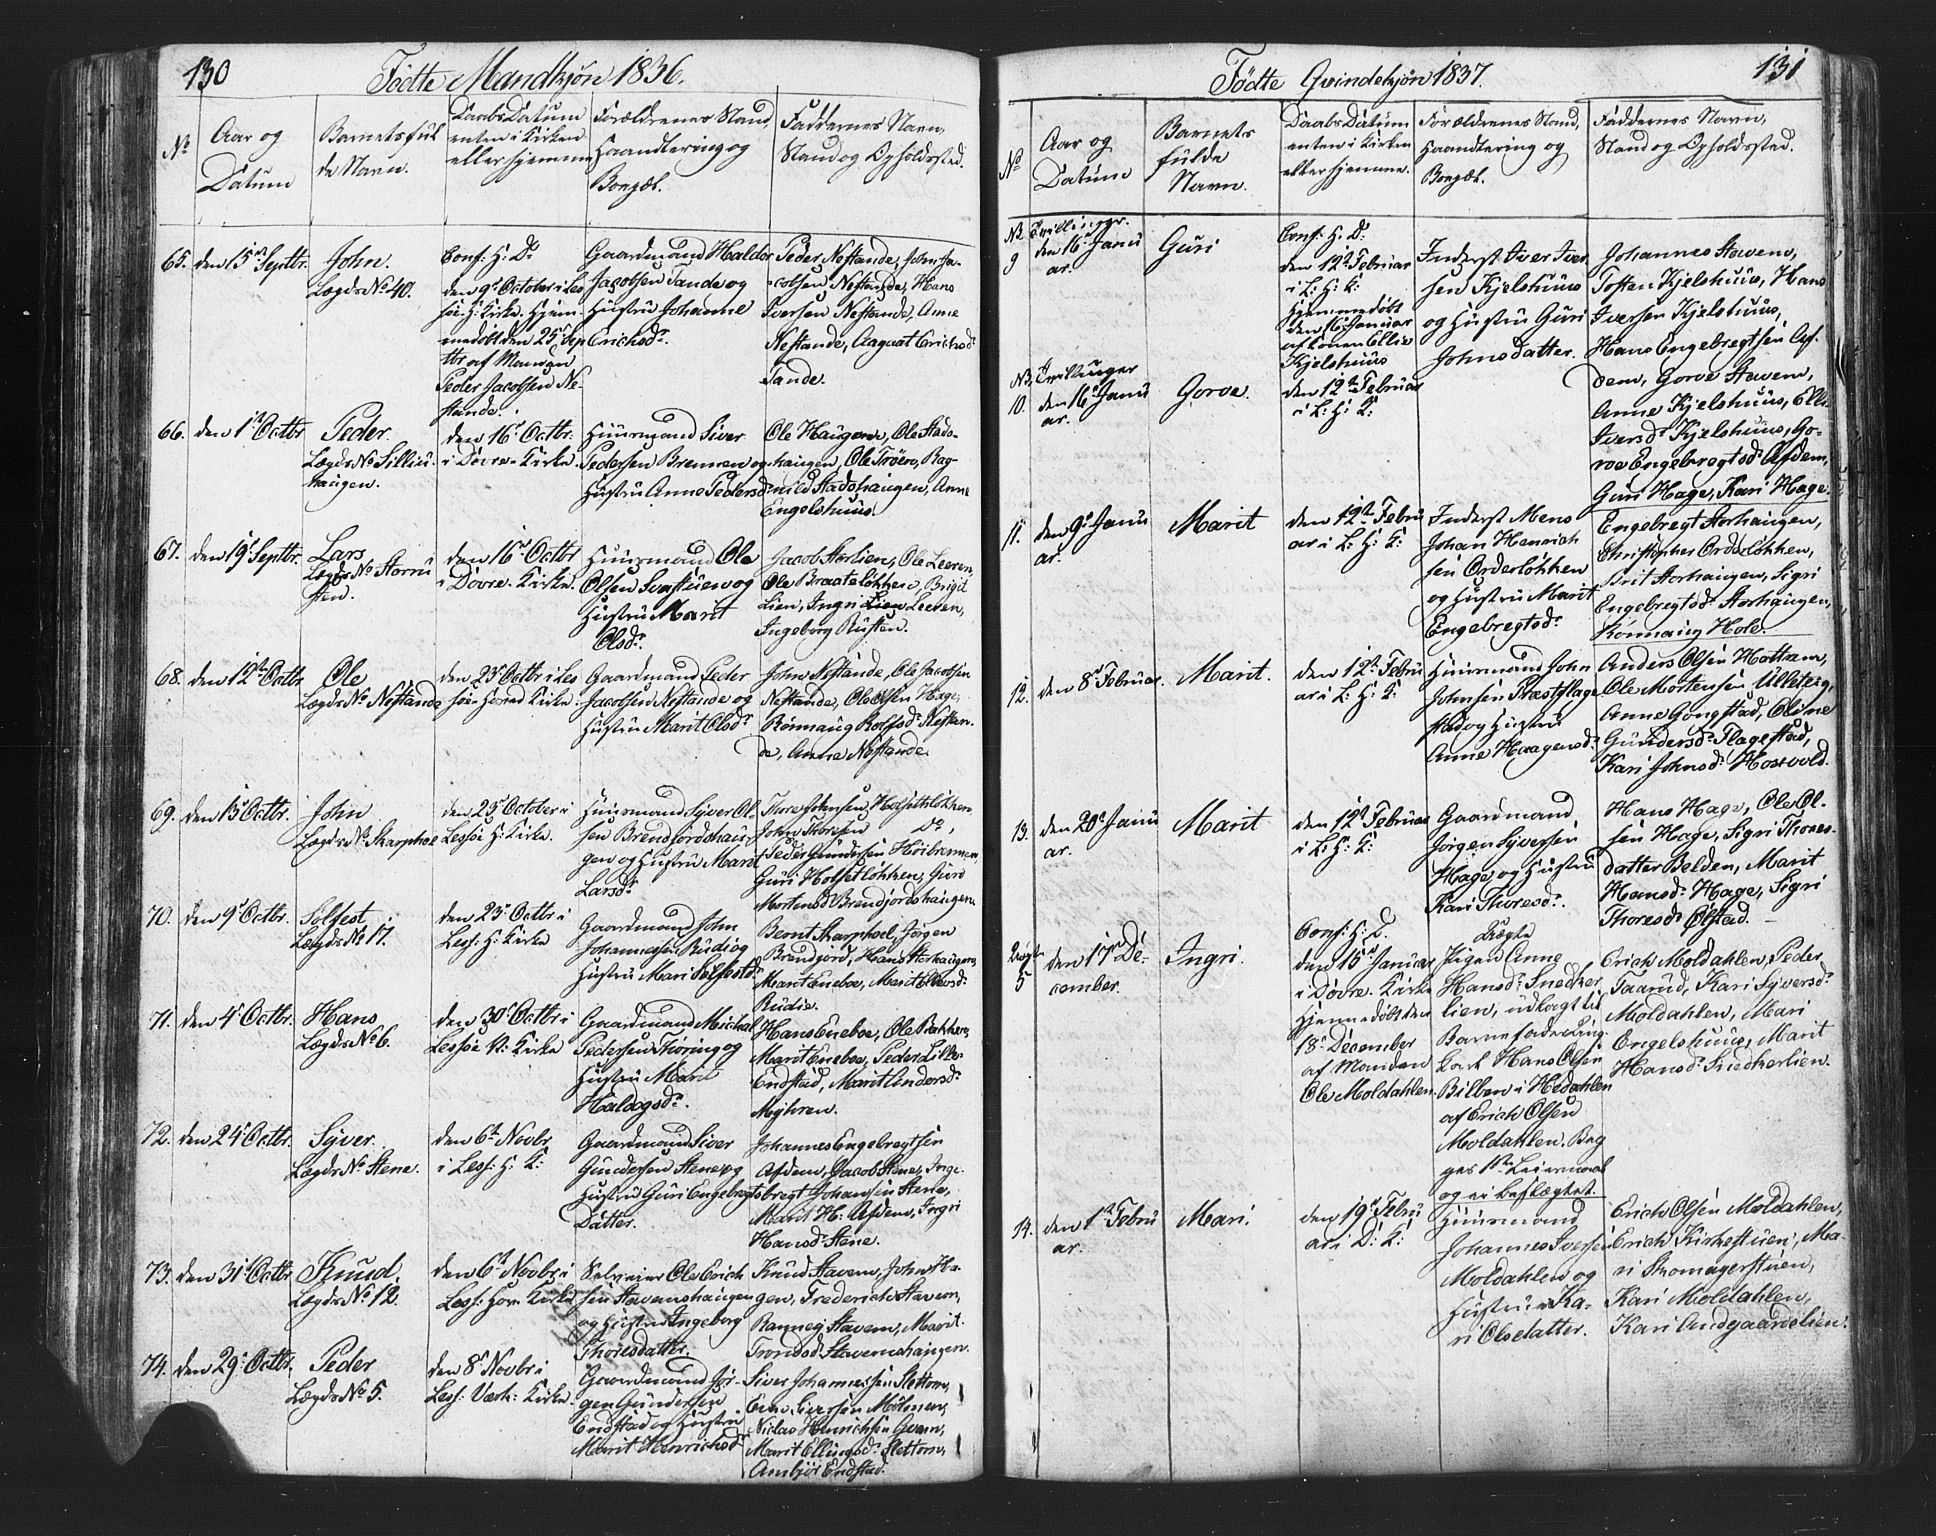 130
Födte Mandkjön 1836.
No
Aar og
Datum
Barnets ful
de Navn.
Daabs Datum
enten i Kirken
eller hjemme
Forældrenes Stand,
Haandtering og
Bopæl.
Faddernes Navn,
Stand og Opholdssted.
65. den 15de Septbr.
John.
Lægds No 40.
Conf: H: D:
den 9de October i Les
söe H: Kirke. Hjem-
medöbt den 25de Sep
tbr af Manden
Peder Jacobsen Ne-
stande.
Gaardmand Haldor
Jacobsen Tande og
Hustru Johanne
Erichsdr.
Peder Nestande, John Ja-
cobsen Nestande, Hans
Iversen Nestande, Anne
Nestande, Aagaat Erichsdr
Tande.
66. den 1ste Octbr
Peder.
Lægds No Lilleu-
haugen.
den 16de Octbr.
i Dovre-Kirke.
Huusmand Siver
Pedersen Brennen og
Hustru Anne Pedersdr
Ole Haugen, Ole Stads-
haugen, Ole Tröen, Rag-
nild Stadshaugen, Anne
Engelshuus.
67. den 19de Septbr.
Lars
Lægds No Storru
sten.
den 16de Octbr
i Dovre-Kirke.
Huusmand Ole
Olsen Svartuen og
Hustru Marit
Olsdr.
Jacob Storlien, Ole Leeren,
Ole Braateløkken, Brigit
Lien, Ingri Lien Leeren,
Ingeborg Rusten.
68. den 12te Octbr
Ole
Lægds No Nestande
den 23de Octbr i Les
söe Hoved Kirke.
Gaardmand Peder
Jacobsen Nestande og
Hustru Marit Olsdr.
John Nestande, Ole Jacobsen
Nestande, Ole Olsen Hage,
Rönnaug Rolfsdr Nestan-
de, Anne Nestande.
69. den 15de Octbr.
John
Lægds No Skarphoe
den 23de October i
Lessöe H: Kirke.
Huusmand Syver Ol-
sen Brendjordshau-
gen og Hustru Marit
Larsdr.
Thore Johnsen, Holsetlökken
John Thoresen Do,
Peder Gundersen Höibrennen,
Guri Holsetlökken, Guri
Mortensdr Brendjordshaugen.
70. den 9de Octbr.
Solfest
Lægds No 17.
den 23de Octbr i
Less: H: Kirke
Gaardmand John
Johannessen Rudi og
Hustru Mari Solfestdr.
Bernt Skarphoel, Jörgen
Brendjord, Hans Storhaugen,
Marit Eneboe, Marit Endresdr.
Rudie.
71. den 4de Octbr.
Hans
Lægds No 6.
den 30de Octbr i
Lessöe H: Kirke
Gaardmand Michel
Pedersen Thöring og
Hustru Marit
Haldogsdr.
Hans Eneboe, Ole Bakken,
Marit Eneboe, Peder Lille-
Endstad, Marit Andersdr.
Mÿhren.
72. den 24de Octbr.
Syver.
Lægds No Stene.
den 6te Novbr
i Less: H: K:
Gaardmand Siver
Gundersen Stene og
Hustru Guri Engebregts
Datter.
Johannes Engebregtsen
Afdem, Jacob Stene, Inge-
bregt Johansen Stene,
Marit H: Afdem, Ingri
Hansdr. Stene.
73. den 31te Octbr
Knud.
Lægds No 12.
den 6te Novbr i
Less: Hov: Kirke
Selveier Ole Erich
sen Stavemshaugen
og Hustru Ingeborg
Thoresdatter.
Knud Stavem, John Ha-
gen, Frederich Stavem,
Ranneg Stavem, Marit
Trondsdr Stavemshaugen.
74. den 29de Octbr.
Peder
Lægds No 5.
den 8de Novbr i
Less: Værk: Kirke.
Gaardmand Jör-
gen Gundersen
Endstad og Hustru
Marit Henrichsdr
Siver Johannessen Slettom,
Even Iversen Mölmen,
Niclas Henrichsen Enstad,
Marit Ellingsdr. Slettom,
Ambjör Endstad.
131
Födte Qvindekjön 1837.
No
Aar og
Datum
Barnets
fulde
Navn.
Daabs Datum
enten i Kirken
eller hjemme.
Forældrenes Stand,
Haandtering og
Bopæl.
Faddernes Navn,
Stand og Opholdssted.
No 9
Tvillinger.
den 16de Janu
ar.
Guri
Conf: H: D:
den 12te Februar
i L: H: K:
Hjemmedöbt
den 16de Januar
af Konen Ellie
Kjelshuus
Inderst Iver Iver
sen Kjelshuus
og Hustru Guri
Johns datter.
Johannes Stavem,
Tosten Kjelshuus, Hans
Iversen Kjelshuus,
Hans Engebregtsen Af-
dem, Gorve Stavem,
Anne Kjelshuus, Elli
Iversdr Kjelshuus, Go-
roe Engebregtsdr Afdem,
Guri Hage, Kari Hage.
No 10.
Tvillinger
den 16de Janu
ar.
Gorve.
den 12te Februar
i L: H: K:
11. den 9de Janu
ar.
Marit
den 12te Febru
ar i L: H: K:
Inderst Mens
Johan Henrich
sen Orderlökken
og Hustru Marit
Engebregtsdr.
Engebregt Storhaugen,
Christopher Orderlökken,
Brit Storhaugen, Sigri
Engebregtsdr Storhaugen,
Rönnaug Hole.
12. den 8de Februar.
Marit.
den 12te Febru
ar i L: H: K:
Huusmand John
Johnsen Præstflage
stad og Hustru
Anne Haagensdr.
Anders Olsen Hattrem,
Ole Mortensen Ulleteig,
Anne Gongstad, Oline
Gundersdr. Flagestad,
Kari Johnsdr. Hosvold.
13. den 20de Janu
ar.
Marit
den 12te Februar
i L: H: K:
Gaardmand
Jörgen Syversen
Hage og Hustru
Kari Thoresdr.
Hans Hage, Ole Ol-
sen Hage, Sigri Thores-
datter Belden, Marit
Hansdr. Hage, Sigri
Thoresdr Ölstad.
Uægte
5
den 17de De-
cember.
Ingri.
Conf: H: D.
den 15de Januar
i Dovre-Kirke
Hjemmedöbt den
18de December
af Manden
Ole Moldahlen.
Uægte
Pigen Anne
Hansdr. Snedker
lien, udlagt til
Barnefader Ung-
karl Hans Olsen
Bilben i Hedahlen
af Erich Olsen
Moldahlen. Beg
ges 1ste Leiermaal
og ei beslægtet.
Erich Moldahlen, Peder
Taarud, Kari Syversdr.
Moldahlen, Mari
Engelshuus, Marit
Hansdr. Snedkerlien.
14. den 1ste Febru
ar.
Mari.
den 19de Febru
ar i D: K:
Huusmand
Johannes Iversen
Moldahlen og
Hustru Ka-
ri Olsdatter.
Erich Olsen Moldahlen,
Erich Kirkestuen, Ma-
ri Skomagerstuen,
Kari Moldahlen,
Kari Andgaardslien.